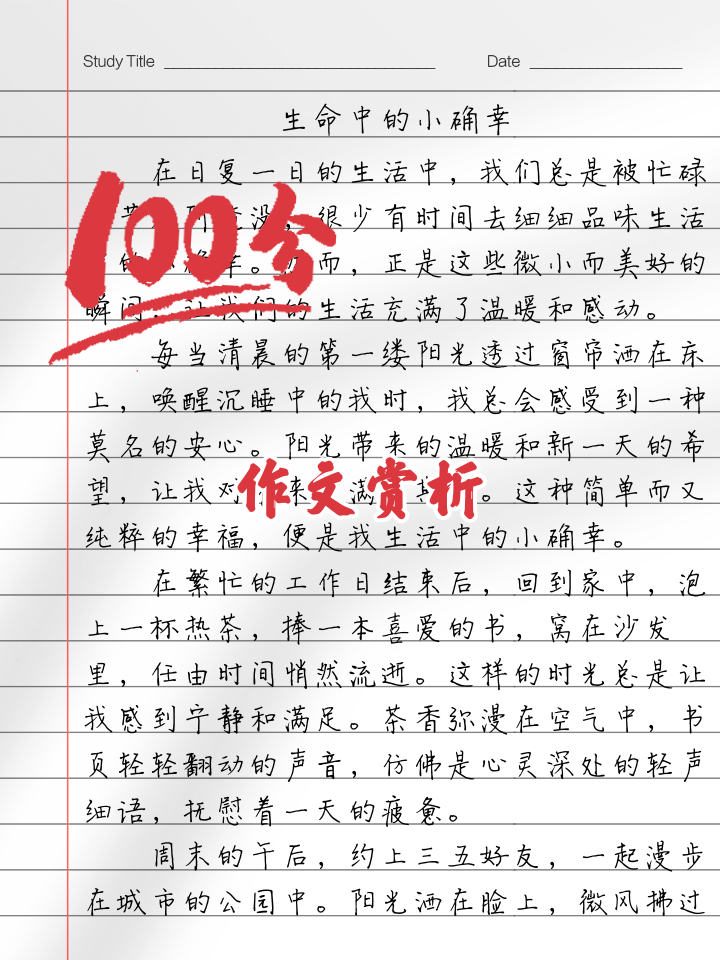 Study Title
Date
生命中的小确幸
在日复一日的生活中，我们总是被忙碌
没，很少有时间去细细品味生活
100分
的 幸。 而，正是这些微小而美好的
瞬间，让我们的生活充满了温暖和感动。
每当清晨的第一缕阳光透过窗帘洒在床
上，唤醒沉睡中的我时，我总会感受到一种
莫名的安心。阳光带来的温暖和新一天的希
望，让我对 来 满 。这种简单而又
作文赏析
纯粹的幸福，便是我生活中的小确幸。
在繁忙的工作日结束后，回到家中，泡
上一杯热茶，捧一本喜爱的书，窝在沙发
里，任由时间悄然流逝。这样的时光总是让
我感到宁静和满足。茶香弥漫在空气中，书
页轻轻翻动的声音，仿佛是心灵深处的轻声
细语，抚慰着一天的疲惫。
周末的午后，约上三五好友，一起漫步
在城市的公园中。阳光洒在脸上，微风拂过